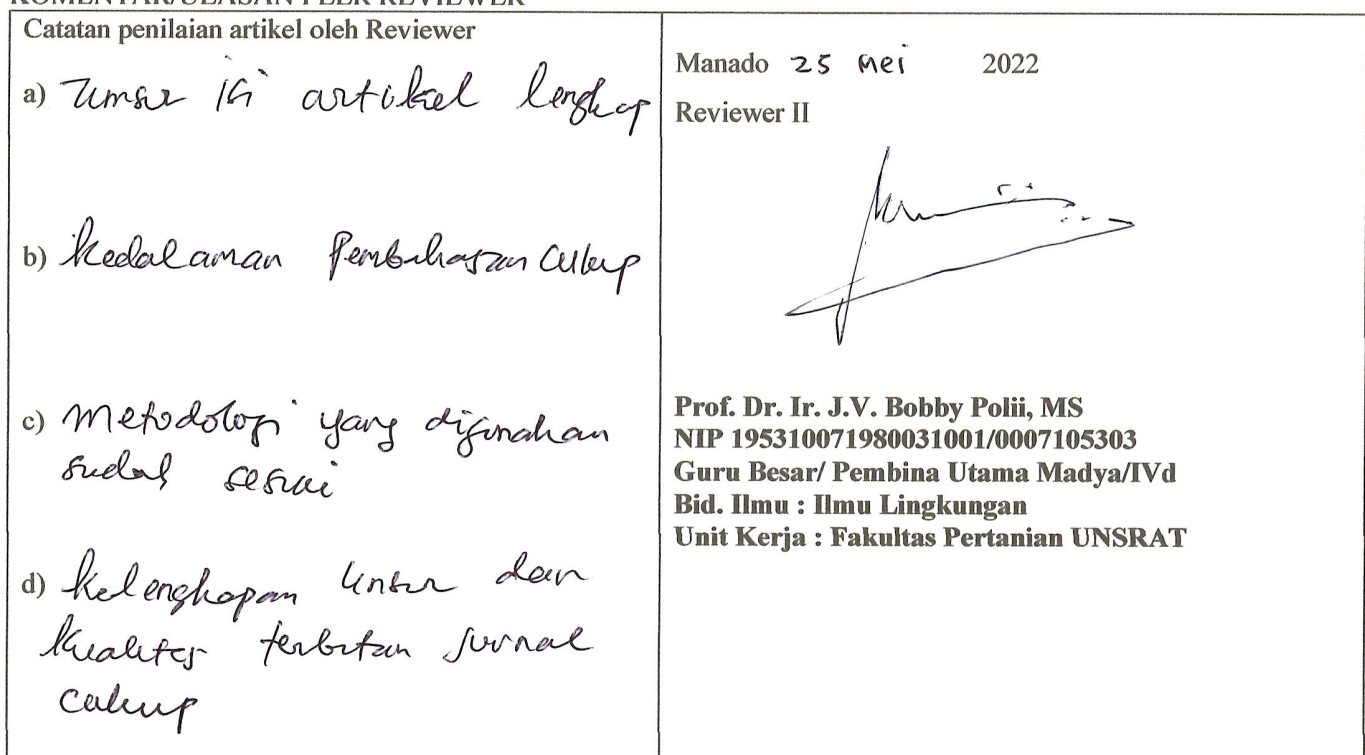 KOMENTAR/ULASAN PEER REVIEWER
Catatan penilaian artikel oleh Reviewer
a) Unsur isi artikel lengkap
b) kedalaman Pembahasan cukup
c) Metodologi yang digunakan
sudah sesuai
d) kelengkapan unsur dan
kualitas terbitan jurnal
cukup
Manado 25 Mei 2022
Reviewer II
Prof. Dr. Ir. J.V. Bobby Polii, MS
NIP 195310071980031001/0007105303
Guru Besar/ Pembina Utama Madya/IVd
Bid. Ilmu : Ilmu Lingkungan
Unit Kerja : Fakultas Pertanian UNSRAT